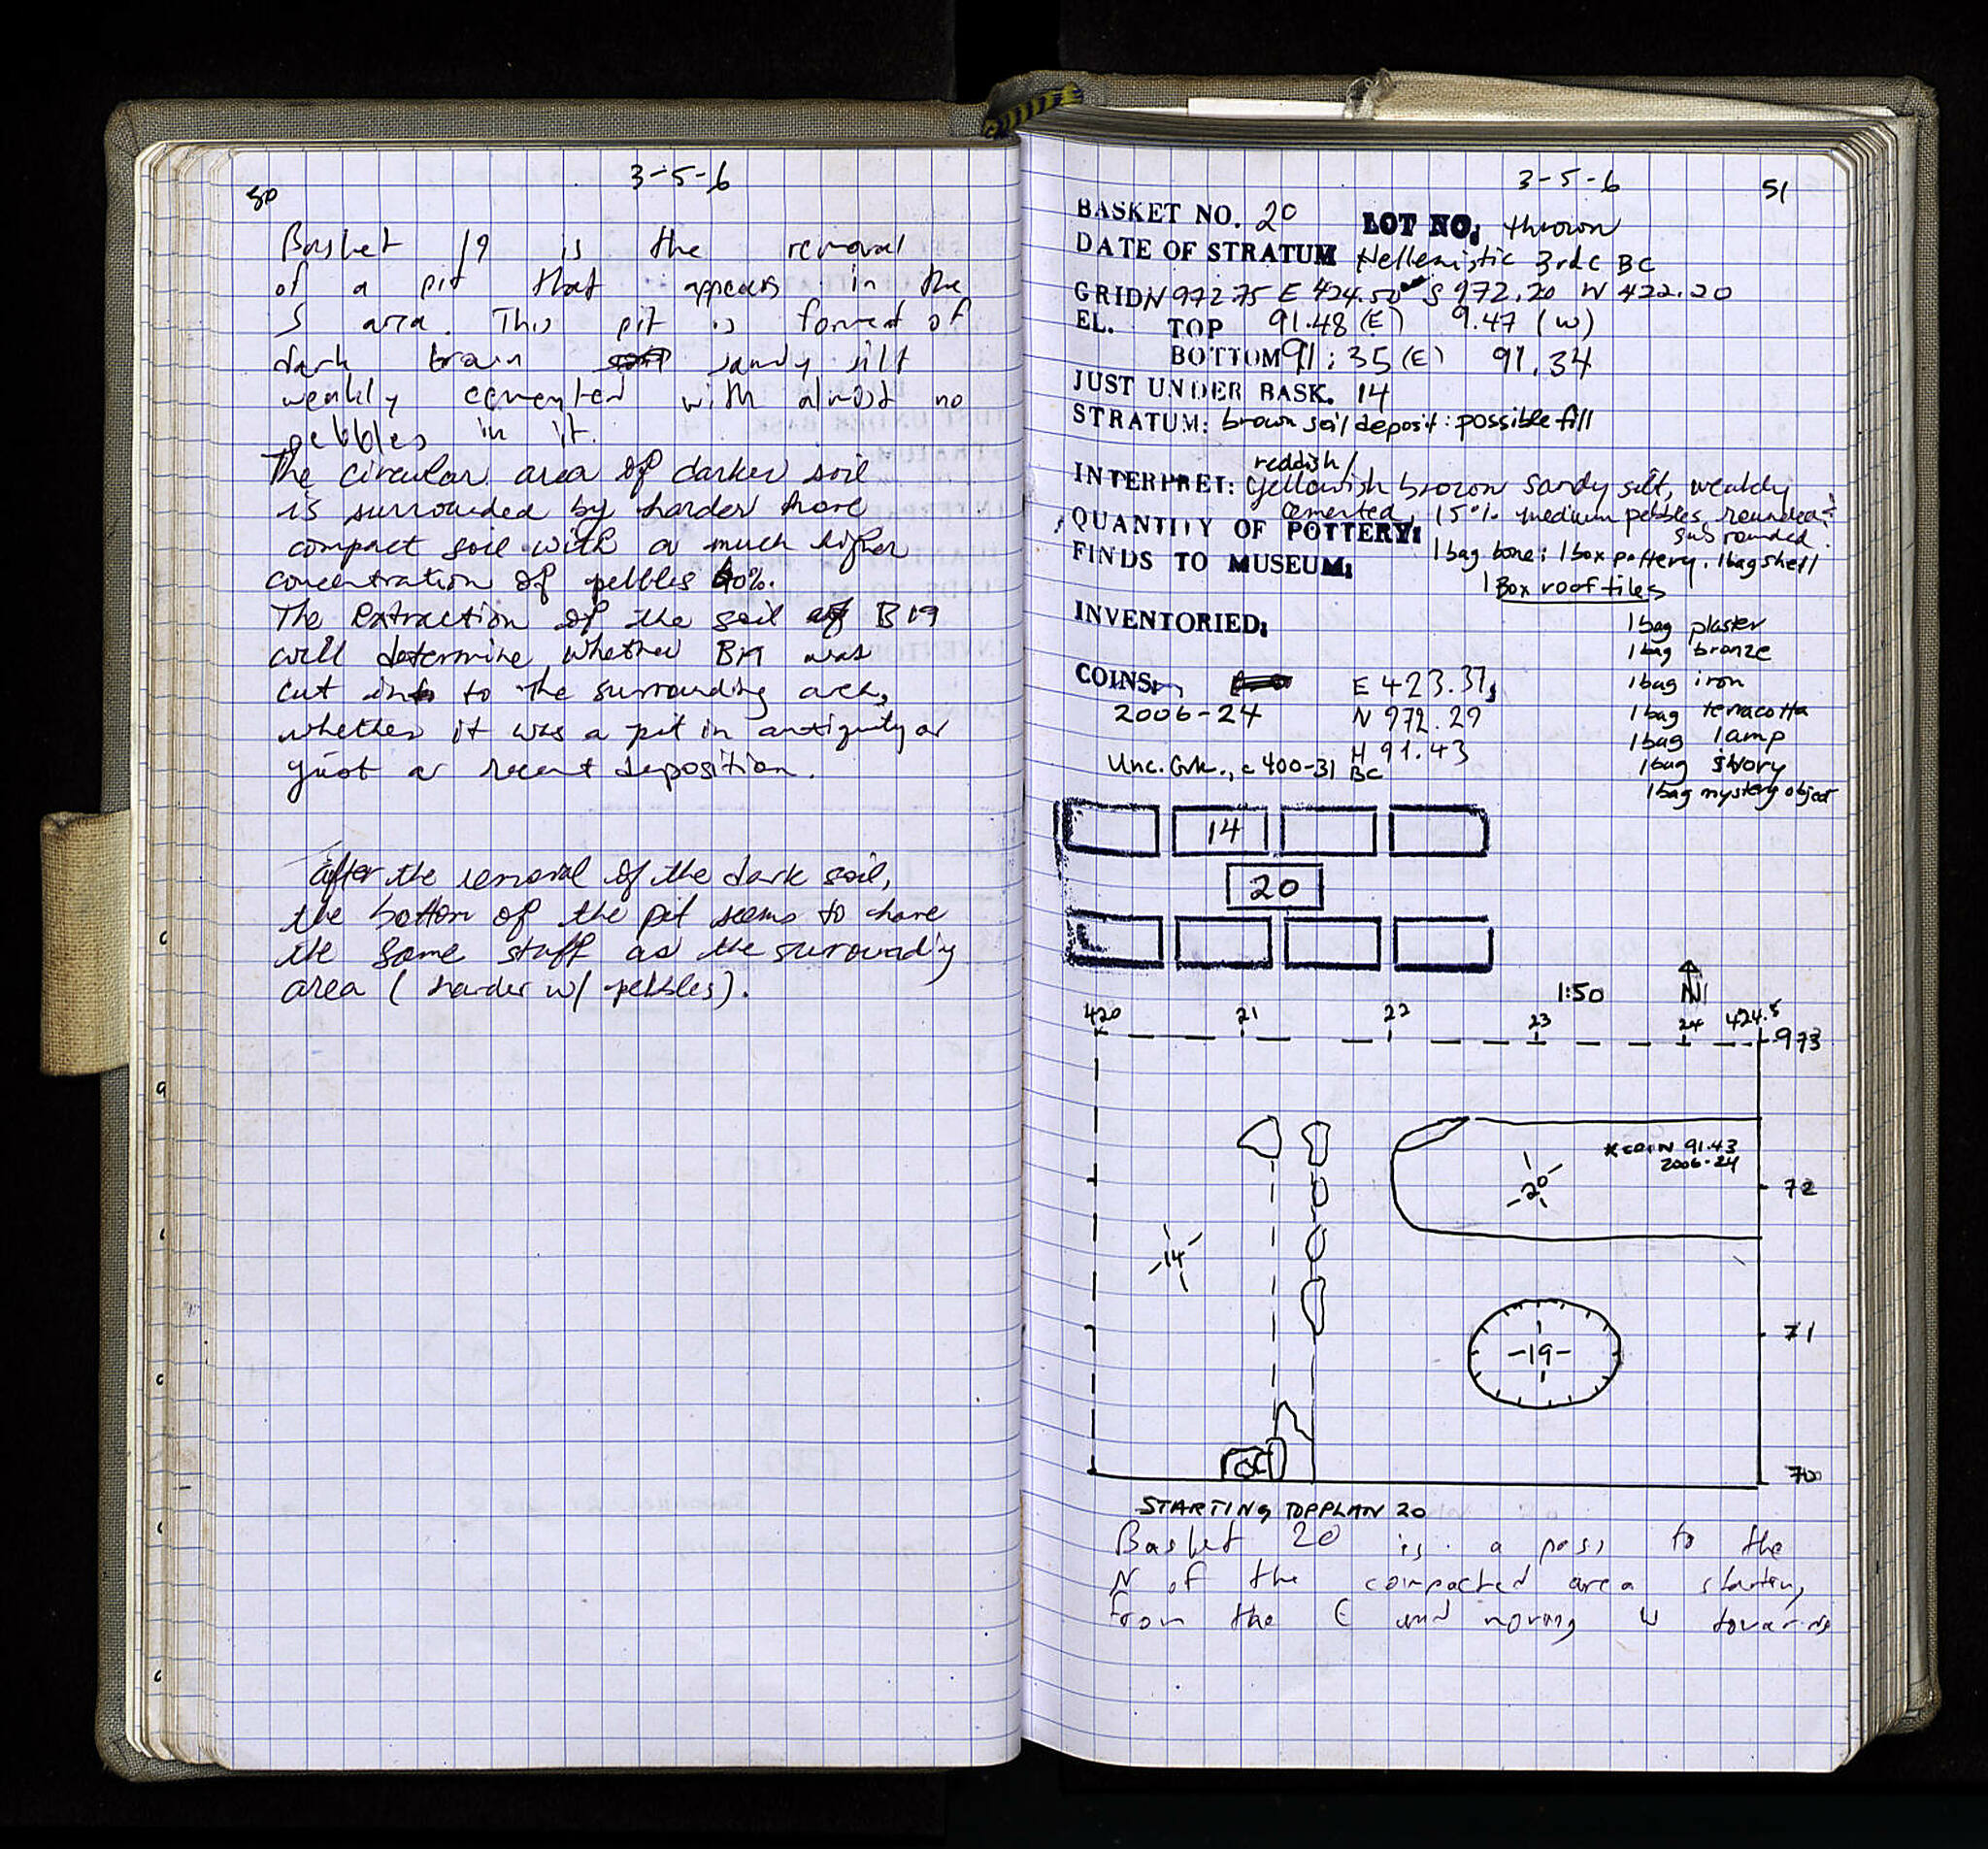 50
3-5-6
Basket 19 is the removal
of a pit that appears in the
S area. This pit is formed of
dark brown sandy silt
weakly cemented with almost no
pebbles in it.
The circular area of darker soil
is surrounded by harder more
compact soil with a much higher
concentration of pebbles 40%.
The extraction of the soil of B19
will determine whether B19 was
cut into to the surrounding area,
whether it was a pit in antiquity or
just a recent deposition.
after the removal of the dark soil,
the bottom of the pit seems to have
the same stuff as the surrounding
area (harder w/ pebbles).
3-5-6
51
BASKET NO. 20 LOT NO: thrown
DATE OF STRATUM Hellenistic 3rd c BC
GRID N 972.75 E 424.50 S 972.20 W 422.20
EL. TOP 91.48 (E) 9.47 (W)
BOTTOM 91.35 (E) 91.34
JUST UNDER BASK. 14
STRATUM: brown soil deposit: possible fill
reddish/
INTERPRET: yellowish brown sandy silt, weakly
cemented, 15% medium pebbles, rounded-
subrounded.
QUANTITY OF POTTERY:
1 bag bone; 1 box pottery. 1 bag shell
FINDS TO MUSEUM:
1 Box roof tiles
INVENTORIED:
1 bag plaster
1 bag bronze
1 bag iron
1 bag terracotta
1 bag lamp
1 bag ivory
1 bag mystery object
COINS: E 423.37,
2006-24 N 972.29
H 91.43
Unc. Grk., c 400-31 BC
14
20
1:50
N
420 21 22 23 24 424.5
973
*COIN 91.43
2006-24
20
72
14
71
19
70
STARTING TOPPLAN 20
Basket 20 is a pass to the
N of the compacted area starting
from the E and moving W towards